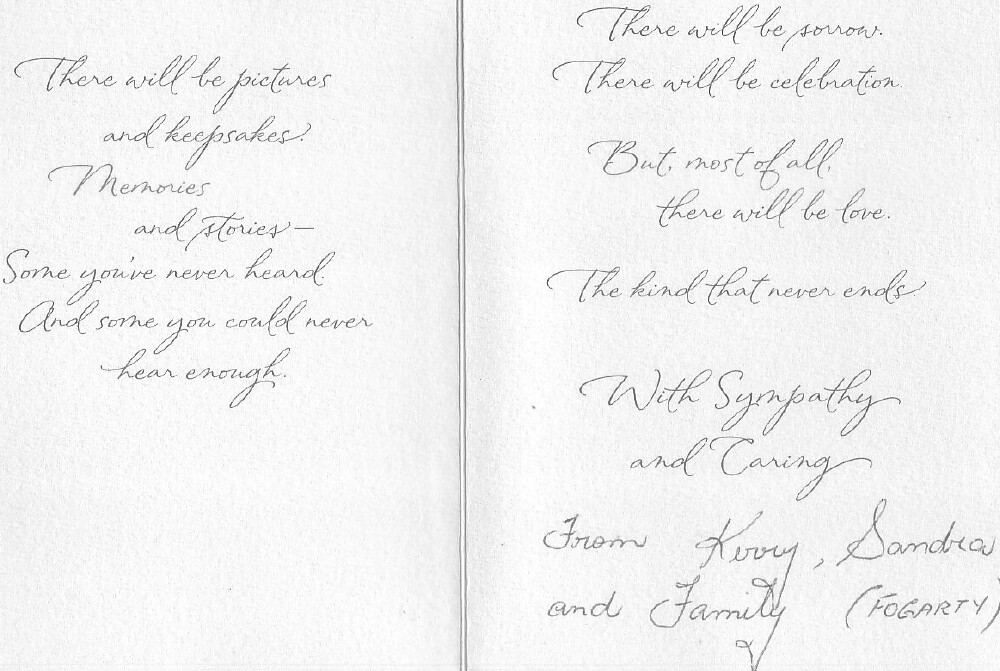 There will be pictures
and keepsakes.
Memories
and stories—
Some you've never heard.
And some you could never
hear enough.
There will be sorrow.
There will be celebration.
But, most of all,
there will be love.
The kind that never ends.
With Sympathy
and Caring
From Kerry, Sandra
and Family (FOGARTY)